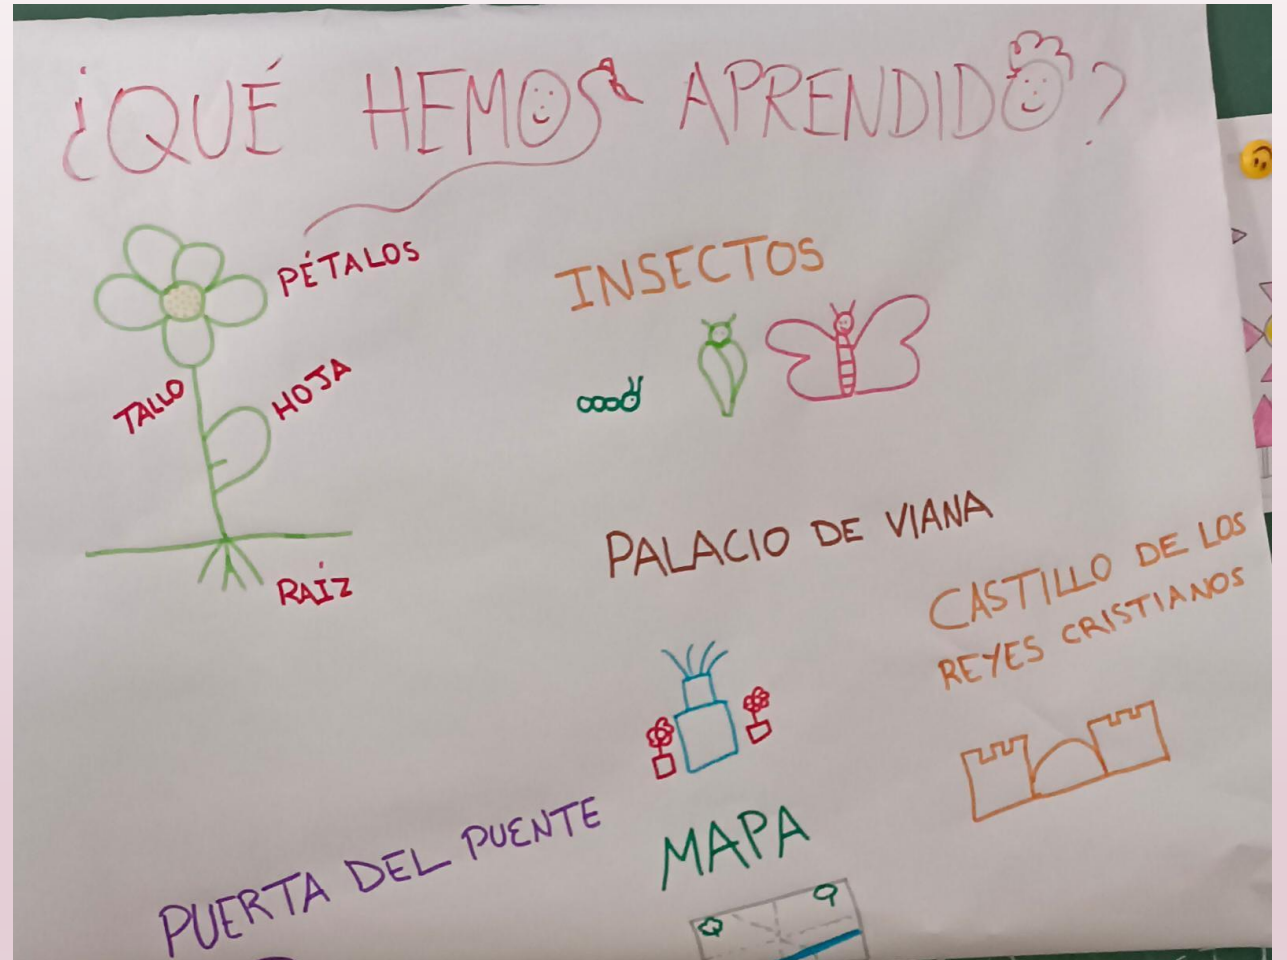 ¿QUÉ HEMOS APRENDIDO?
PÉTALOS
INSECTOS
TALLO
HOJA
RAÍZ
PALACIO DE VIANA
CASTILLO DE LOS
REYES CRISTIANOS
PUERTA DEL PUENTE
MAPA